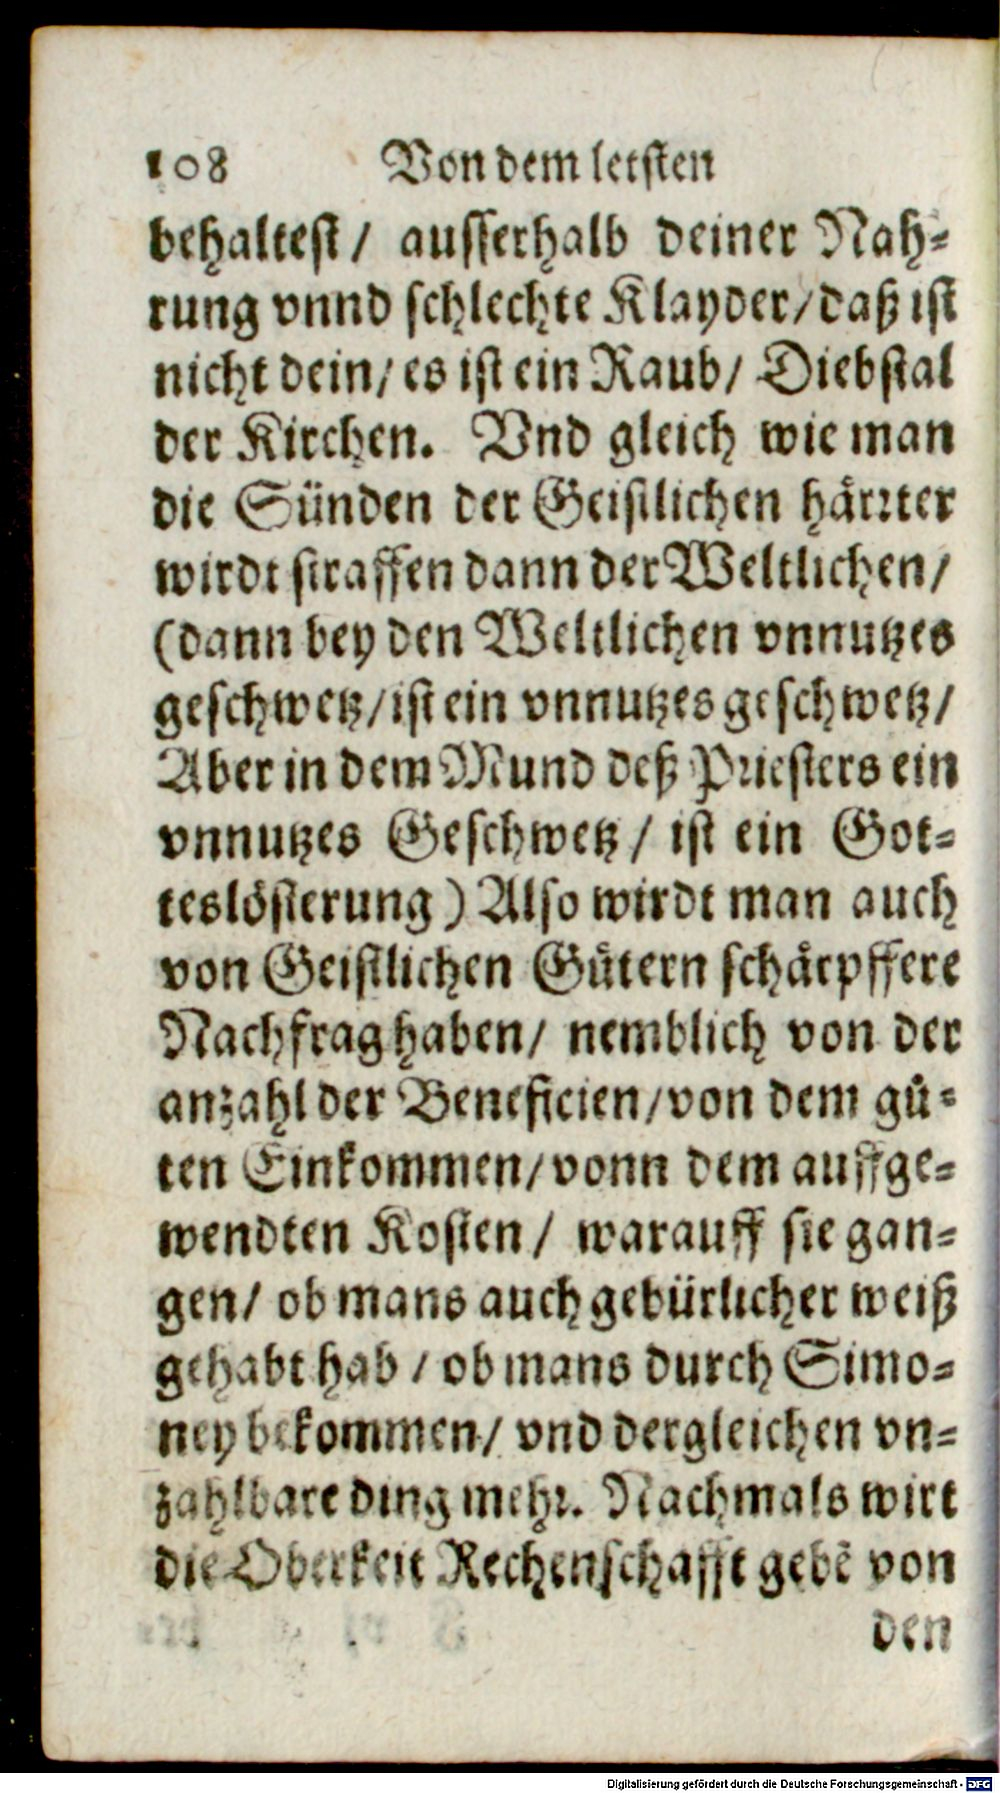 108 Von dem letsten
behaltest/ ausserhalb deiner Nah-
rung vnnd schlechte Klayder/daß ist
nicht dein/ es ist ein Raub/ Diebstal
der Kirchen. Vnd gleich wie man
die Sünden der Geistlichen härrter
wirdt straffen dann der Weltlichen/
(dann bey den Weltlichen vnnutzes
geschwetz/ist ein vnnutzes geschwetz/
Aber in dem Mund deß Priesters ein
vnnutzes Geschwetz/ ist ein Got-
teslösterung) Also wirdt man auch
von Geistlichen Gütern schärpffere
Nachfrag haben/ nemblich von der
anzahl der Beneficien/von dem gů-
ten Einkommen/vonn dem auffge-
wendten Kosten/ warauff sie gan-
gen/ ob mans auch gebürlicher weiß
gehabt hab/ ob mans durch Simo-
ney bekommen/ vnd dergleichen vn-
zahlbare ding mehr. Nachmals wirt
die Oberkeit Rechenschafft gebē von
den
Digitalisierung gefördert durch die Deutsche Forschungsgemeinschaft - DFG